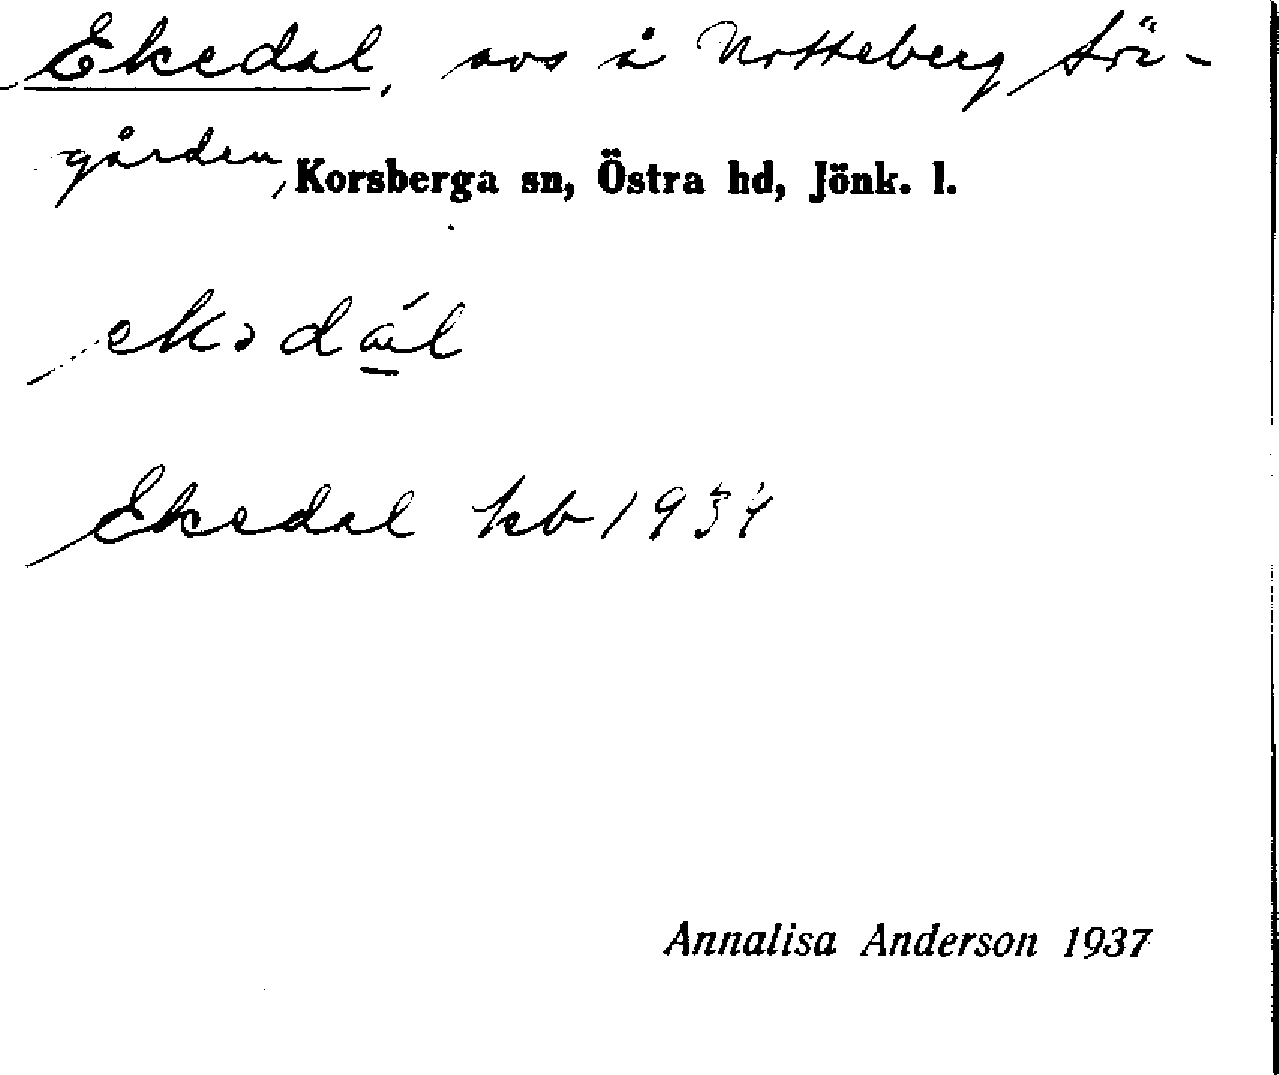 Ekedal, avs å Notteberg Sö-
gården, Korsberga sn, Östra hd, Jönk. l.
Ekedal kb 1934
Annalisa Anderson 1937